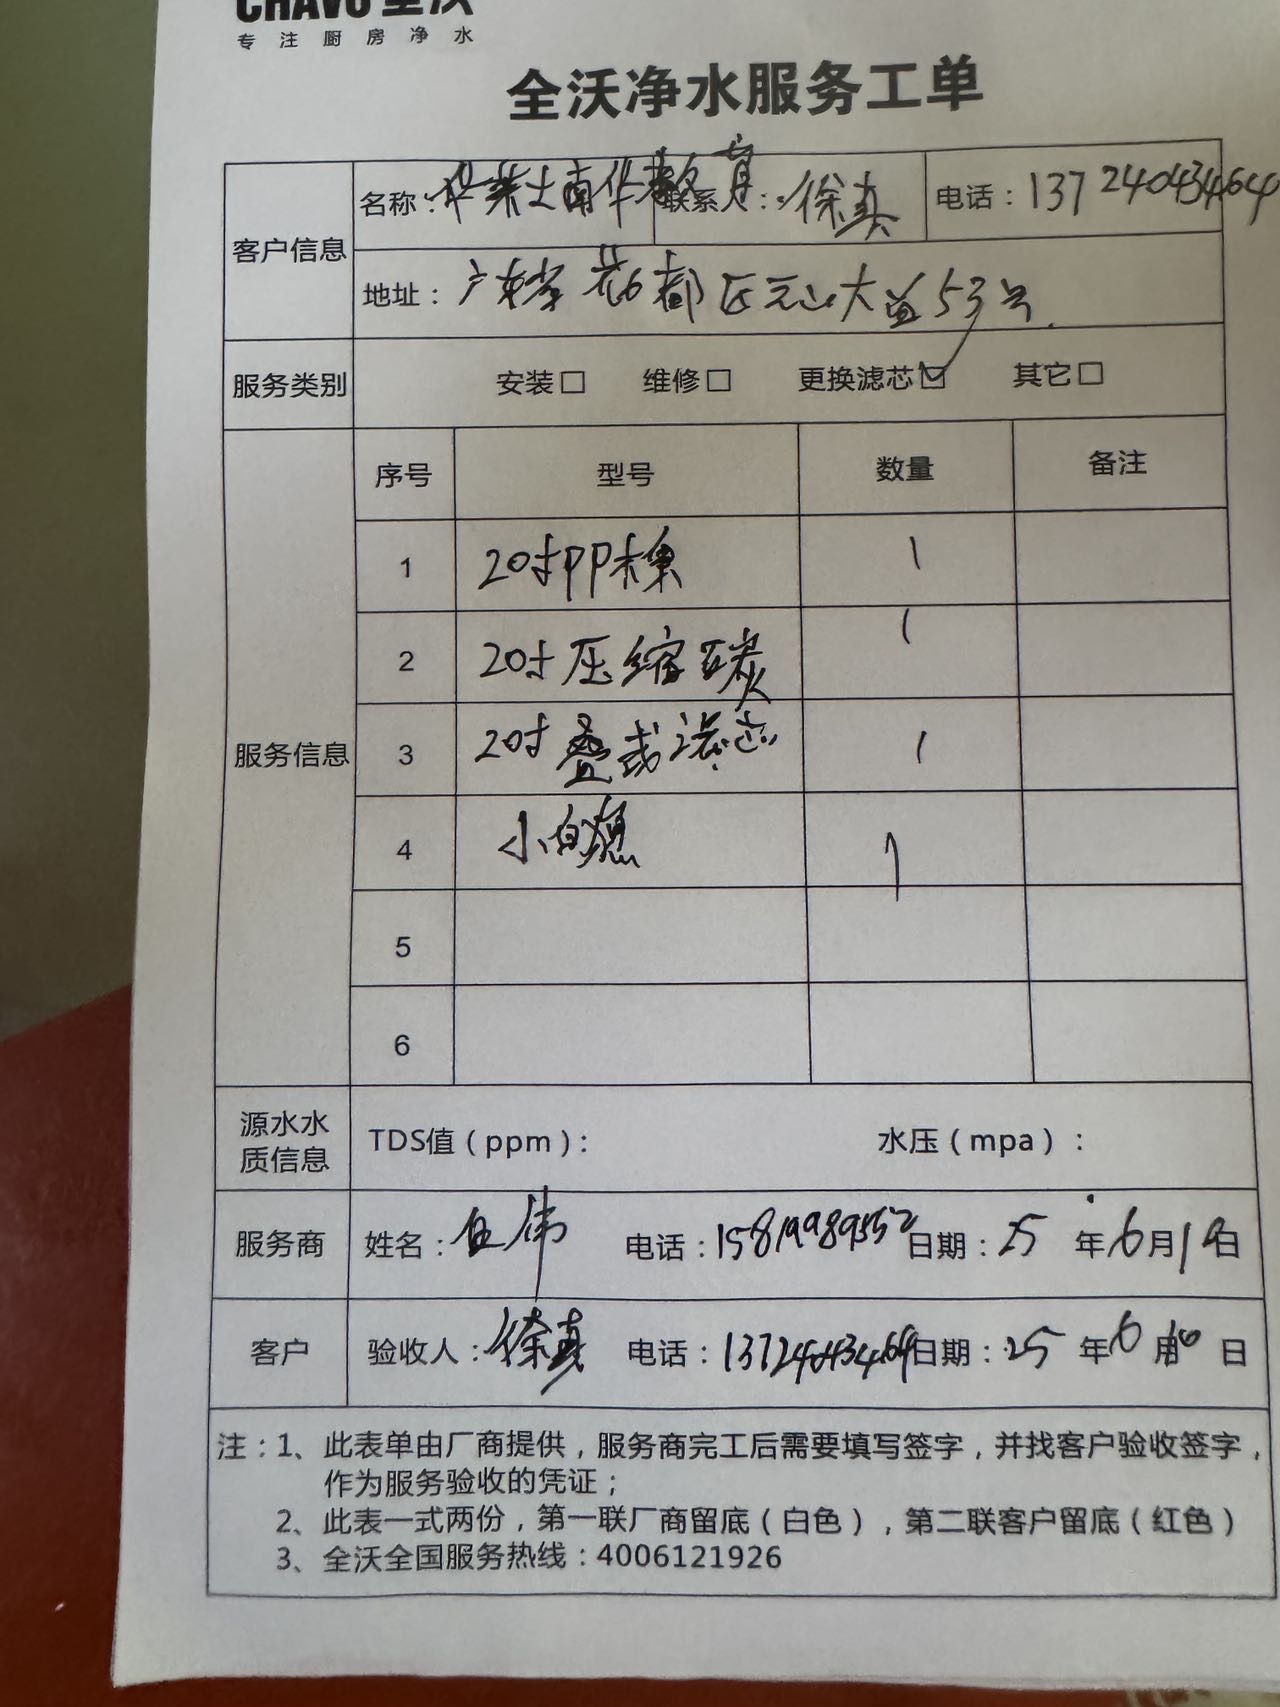 CHAVO全沃
专注厨房净水
全沃净水服务工单
客户信息
名称：华莱士南华教育 联系人：徐真 电话：13724043464
地址：广东省花都区元山大道53号.
服务类别 安装□ 维修□ 更换滤芯☑ 其它□
服务信息
序号 型号 数量 备注
1 20寸PP棉 1
2 20寸压缩碳 1
3 20寸叠式滤芯 1
4 小白 1
5
6
源水水质信息 TDS值（ppm）： 水压（mpa）：
服务商 姓名：伟 电话：15819989552 日期：25年6月10日
客户 验收人：徐真 电话：13724043464 日期：25年6月10日
注：1、此表单由厂商提供，服务商完工后需要填写签字，并找客户验收签字，
作为服务验收的凭证；
2、此表一式两份，第一联厂商留底（白色），第二联客户留底（红色）
3、全沃全国服务热线：4006121926